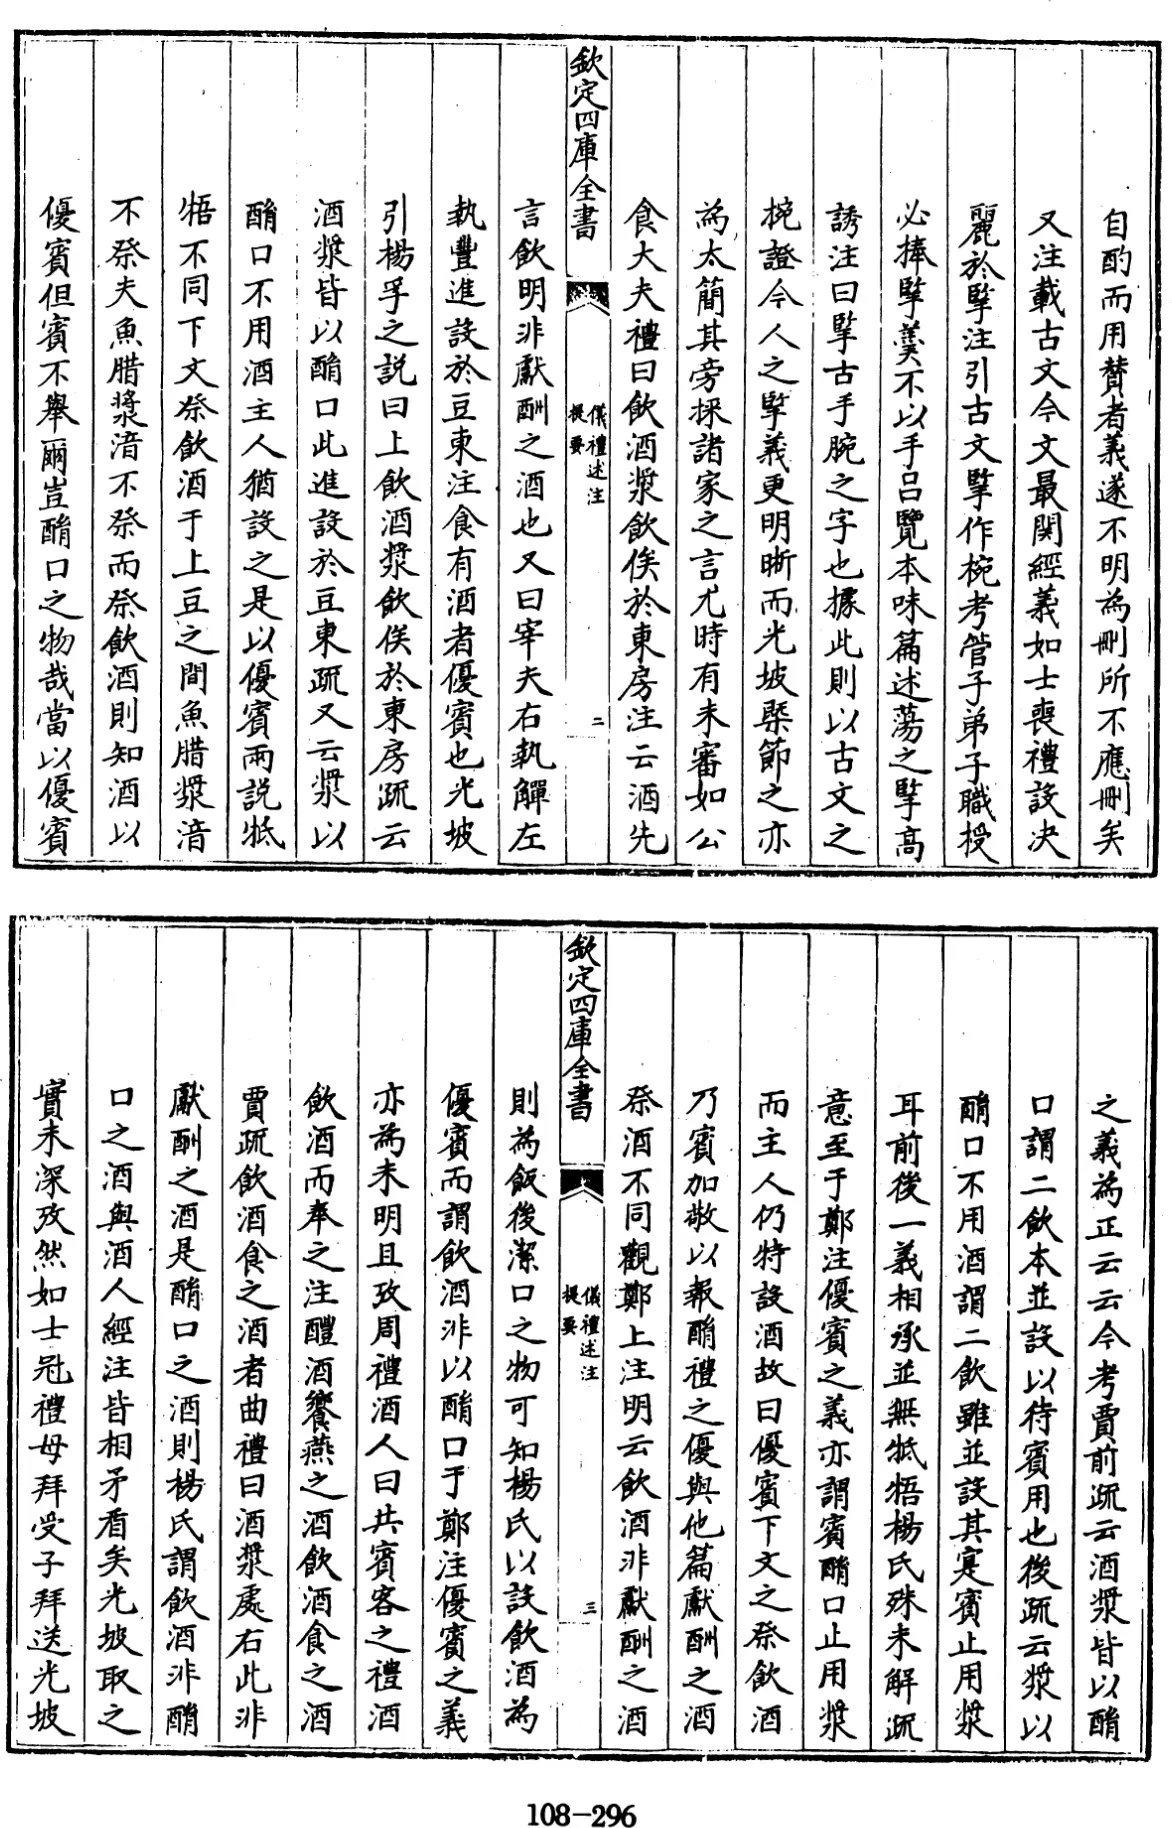 自酌而用贊者義遂不明為刪所不應刪矣
又注載古文今文最關經義如士喪禮設决
麗於掔注引古文掔作椀考管子弟子職授
必捧掔羮不以手吕覽本味篇述蕩之掔高
誘注曰掔古手腕之字也據此則以古文之
椀證今人之掔義更明晰而光坡槩節之亦
為太簡其旁採諸家之言尤時有未審如公
食大夫禮曰飲酒漿飲俟於東房注云酒先
欽定四庫全書
儀禮述注
提要
二
言飲明非獻酬之酒也又曰宰夫右執觶左
執豐進設於豆東注食有酒者優賓也光坡
引楊孚之説曰上飲酒漿飲俟於東房疏云
酒漿皆以酳口此進設於豆東疏又云漿以
酳口不用酒主人猶設之是以優賓兩説牴
牾不同下文祭飲酒于上豆之間魚腊漿湆
不祭夫魚腊漿湆不祭而祭飲酒則知酒以
優賓但賓不舉爾豈酳口之物哉當以優賓
之義為正云云今考賈前疏云酒漿皆以酳
口謂二飲本並設以待賓用也後疏云漿以
酳口不用酒謂二飲雖並設其寔賓止用漿
耳前後一義相承並無牴牾楊氏殊未解疏
意至于鄭注優賓之義亦謂賓酳口止用漿
而主人仍特設酒故曰優賓下文之祭飲酒
乃賓加敬以報酳禮之優與他篇獻酬之酒
祭酒不同觀鄭上注明云飲酒非獻酬之酒
欽定四庫全書
儀禮述注
提要
三
則為飯後潔口之物可知楊氏以設飲酒為
優賓而謂飲酒非以酳口于鄭注優賓之義
亦為未明且攷周禮酒人曰共賓客之禮酒
飲酒而奉之注醴酒饗燕之酒飲酒食之酒
賈疏飲酒食之酒者曲禮曰酒漿處右此非
獻酬之酒是酳口之酒則楊氏謂飲酒非酳
口之酒與酒人經注皆相矛盾矣光坡取之
實未深攷然如士冠禮母拜受子拜送光坡
108-296